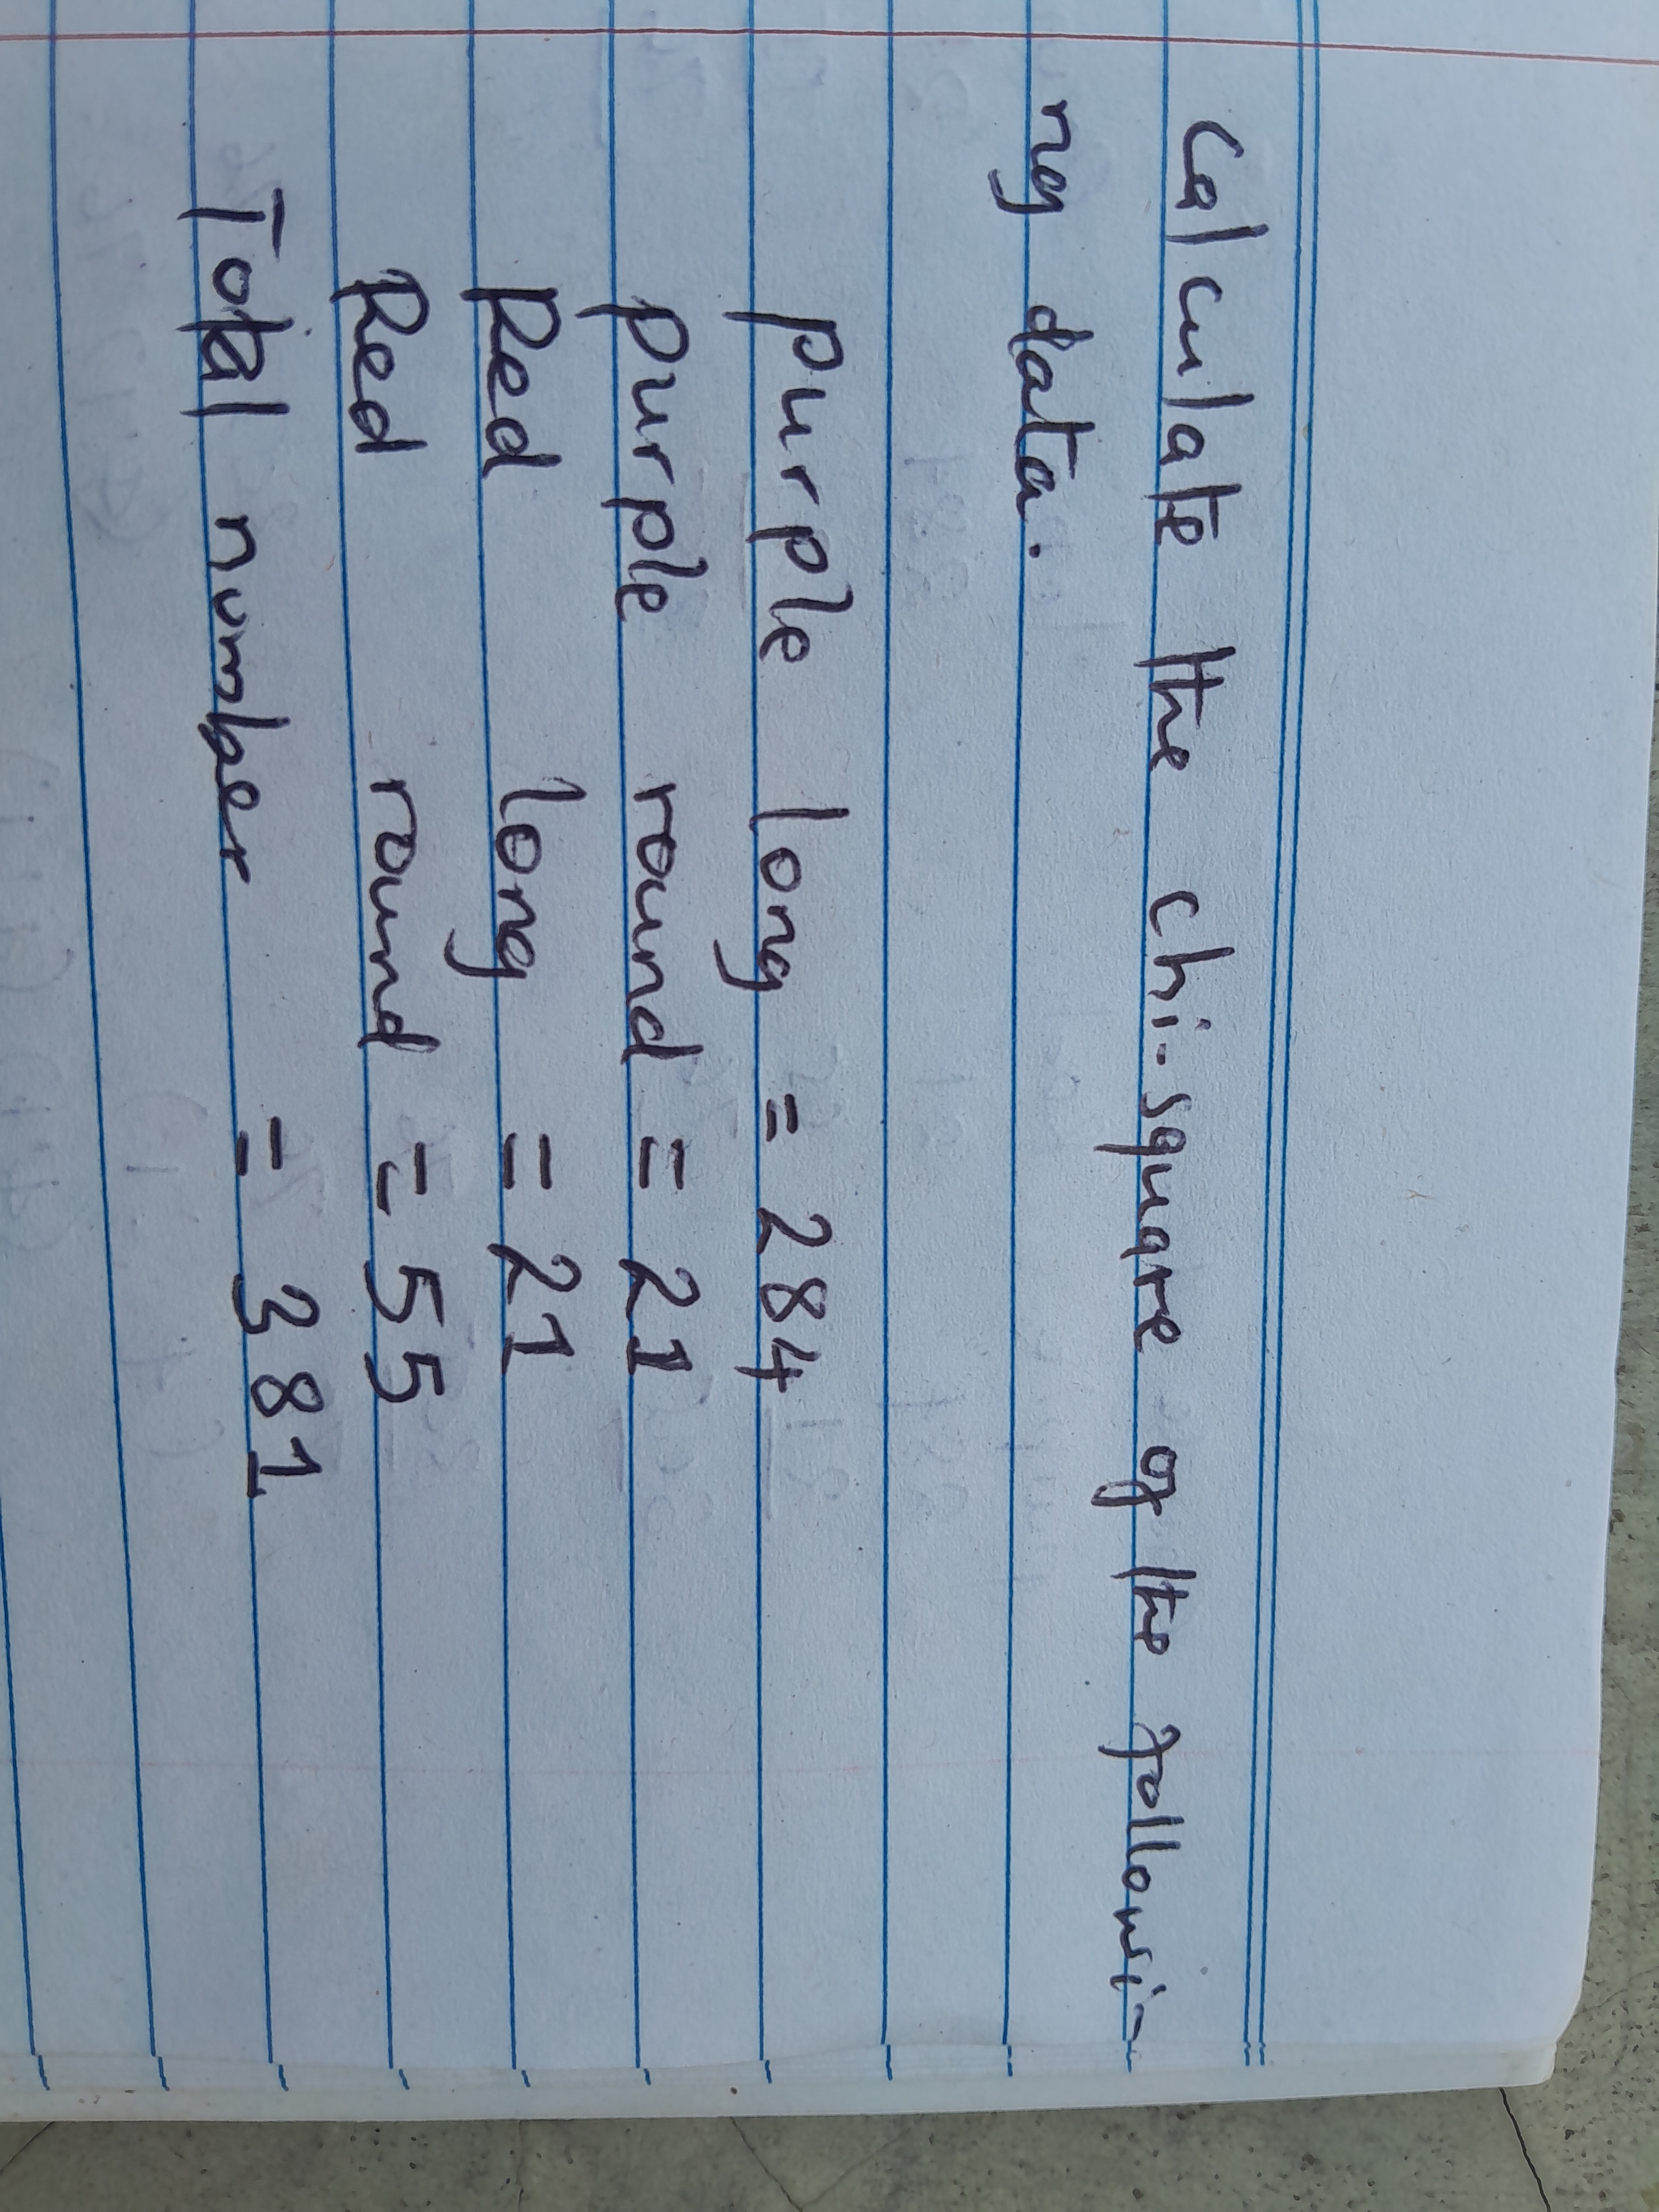 Calculate the chi-square of the followi-
ng data.
purple long = 284
purple round = 21
Red long = 21
Red round = 55
Total number = 381